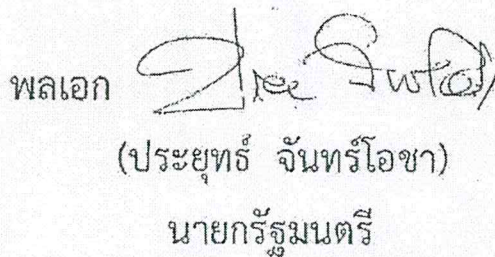 พลเอก
(ประยุทธ์ จันทร์โอชา)
นายกรัฐมนตรี